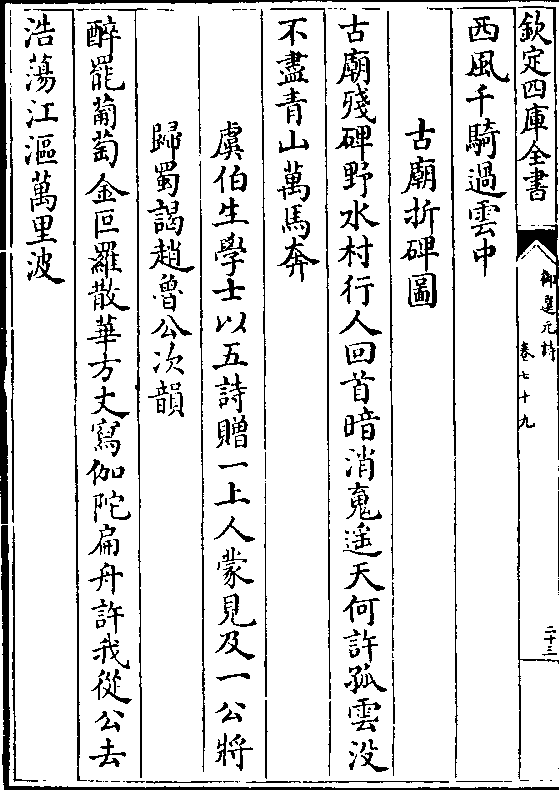 欽定四庫全書
御選元詩
卷七十九
二十三
西風千騎過雲中
古廟折碑圖
古廟殘碑野水村行人回首暗消䰟遥天何許孤雲没
不盡青山萬馬奔
虞伯生學士以五詩贈一上人蒙見及一公將
歸蜀謁趙魯公次韻
醉罷葡萄金叵羅散華方丈寫伽陀扁舟許我從公去
浩蕩江漚萬里波